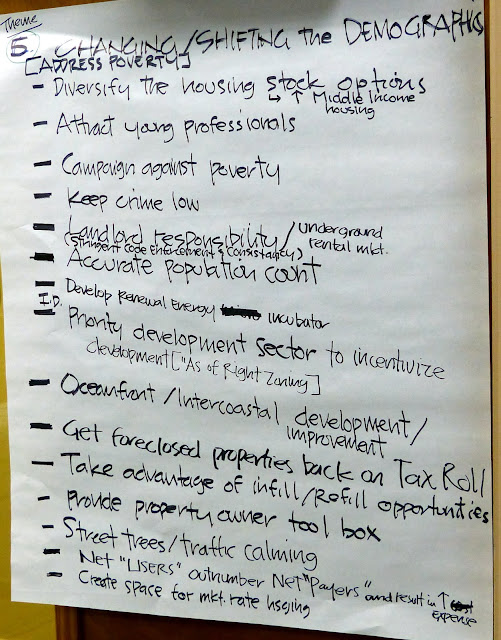 Theme
5 CHANGING/SHIFTING the DEMOGRAPHICS
[ADDRESS POVERTY]
- Diversify the housing stock options
↳ ↑ Middle Income
housing
- Attract young professionals
- Campaign against poverty
- Keep crime low
- Landlord responsibility/underground
rental mkt.
(Stringent Code Enforcement & Consistancy)
- Accurate population count
- Develop Renewal Energy incubator
I.D. - Priority development sector to incentivize
development ["As of Right Zoning]
- Oceanfront/Intercoastal development/
improvement
- Get foreclosed properties back on Tax Roll
- Take advantage of infill/Refill opportunities
- Provide property owner tool box
- Street trees/traffic calming
- Net "USERS" outnumber Net "Payers" and result in ↑
expense
- Create space for mkt. rate hsging